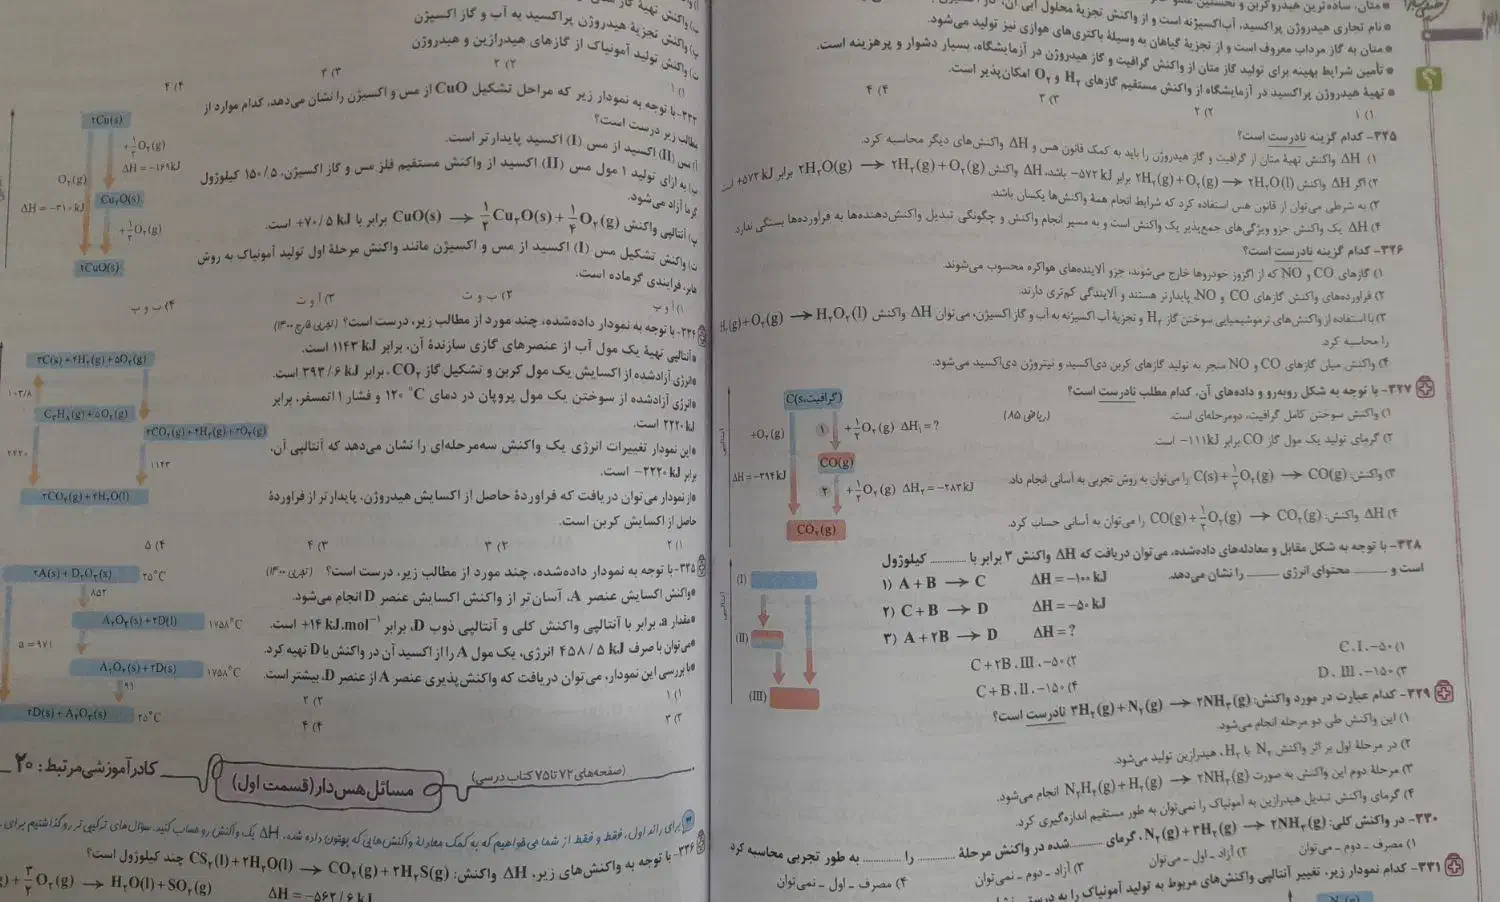 * متان، ساده‌ترین هیدروکربن و نخستین
* نام تجاری هیدروژن پراکسید، آب‌اکسیژنه است و از واکنش تجزیهٔ محلول آبی آن، گاز
* متان به گاز مرداب معروف است و از تجزیهٔ گیاهان به وسیلهٔ باکتری‌های هوازی نیز تولید می‌شود.
* تأمین شرایط بهینه برای تولید گاز متان از واکنش گرافیت و گاز هیدروژن در آزمایشگاه، بسیار دشوار و پرهزینه است.
* تهیهٔ هیدروژن پراکسید در آزمایشگاه از واکنش مستقیم گازهای H₂ و O₂ امکان‌پذیر است.
۱) ۱ ۲) ۲ ۳) ۳ ۴) ۴
۳۲۵- کدام گزینه نادرست است؟
۱) ΔH واکنش تهیهٔ متان از گرافیت و گاز هیدروژن را باید به کمک قانون هس و ΔH واکنش‌های دیگر محاسبه کرد.
۲) اگر ΔH واکنش ۲H₂(g)+O₂(g) → ۲H₂O(l) برابر ۵۷۲ kJ− باشد، ΔH واکنش ۲H₂O(g) → ۲H₂(g)+O₂(g) برابر ۵۷۲ kJ+
۳) به شرطی می‌توان از قانون هس استفاده کرد که شرایط انجام همهٔ واکنش‌ها یکسان باشد.
۴) ΔH یک واکنش جزو ویژگی‌های جمع‌پذیر یک واکنش است و به مسیر انجام واکنش و چگونگی تبدیل واکنش‌دهنده‌ها به فراورده‌ها بستگی ندارد.
۳۲۶- کدام گزینه نادرست است؟
۱) گازهای CO و NO که از اگزوز خودروها خارج می‌شوند، جزو آلاینده‌های هواکره محسوب می‌شوند.
۲) فراورده‌های واکنش گازهای CO و NO، پایدارتر هستند و آلایندگی کم‌تری دارند.
۳) با استفاده از واکنش‌های ترموشیمیایی سوختن گاز H₂ و تجزیهٔ آب اکسیژنه به آب و گاز اکسیژن، می‌توان ΔH واکنش H₂(g)+O₂(g) → H₂O₂(l)
را محاسبه کرد.
۴) واکنش میان گازهای CO و NO منجر به تولید گازهای کربن دی‌اکسید و نیتروژن دی‌اکسید می‌شود.
۳۲۷- با توجه به شکل روبه‌رو و داده‌های آن، کدام مطلب نادرست است؟
(ریاضی ۸۵)
۱) واکنش سوختن کامل گرافیت، دومرحله‌ای است.
۲) گرمای تولید یک مول گاز CO برابر ۱۱۱kJ− است.
۳) واکنش: C(s)+½O₂(g) → CO(g) را می‌توان به روش تجربی به آسانی انجام داد.
۴) ΔH واکنش: CO(g)+½O₂(g) → CO₂(g) را می‌توان به آسانی حساب کرد.
C(s،گرافیت)
+O₂(g)
۱
+½O₂(g) ΔH₁=?
CO(g)
ΔH=−۳۹۴kJ
۲
+½O₂(g) ΔH₂=−۲۸۳kJ
CO₂(g)
آنتالپی
۳۲۸- با توجه به شکل مقابل و معادله‌های داده‌شده، می‌توان دریافت که ΔH واکنش ۳ برابر با ........ کیلوژول
است و ........ محتوای انرژی ........ را نشان می‌دهد.
۱) A+B → C ΔH=−۱۰۰ kJ
۲) C+B → D ΔH=−۵۰ kJ
۳) A+۲B → D ΔH=?
۱) C، I، −۵۰
۲) C+۲B، III، −۵۰
۳) D، III، −۱۵۰
۴) C+B، II، −۱۵۰
(I)
(II)
(III)
آنتالپی
۳۲۹- کدام عبارت در مورد واکنش: ۳H₂(g)+N₂(g) → ۲NH₃(g) نادرست است؟
۱) این واکنش طی دو مرحله انجام می‌شود.
۲) در مرحلهٔ اول بر اثر واکنش N₂ با H₂، هیدرازین تولید می‌شود.
۳) مرحلهٔ دوم این واکنش به صورت N₂H₄(g)+H₂(g) → ۲NH₃(g) انجام می‌شود.
۴) گرمای واکنش تبدیل هیدرازین به آمونیاک را نمی‌توان به طور مستقیم اندازه‌گیری کرد.
۳۳۰- در واکنش کلی: N₂(g)+۳H₂(g) → ۲NH₃(g)، گرمای ........ شده در واکنش مرحلهٔ ........ را ........ به طور تجربی محاسبه کرد
۱) مصرف ـ دوم ـ می‌توان ۲) آزاد ـ اول ـ می‌توان ۳) آزاد ـ دوم ـ نمی‌توان ۴) مصرف ـ اول ـ نمی‌توان
۳۳۱- کدام نمودار زیر، تغییر آنتالپی واکنش‌های مربوط به تولید آمونیاک را به درستی
پ) واکنش تجزیهٔ هیدروژن پراکسید به آب و گاز اکسیژن
ت) واکنش تولید آمونیاک از گازهای هیدرازین و هیدروژن
۱) ۱ ۲) ۲ ۳) ۳ ۴) ۴
۳۳۳- با توجه به نمودار زیر که مراحل تشکیل CuO از مس و اکسیژن را نشان می‌دهد، کدام موارد از
مطالب زیر درست است؟
آ) مس (II) اکسید از مس (I) اکسید پایدارتر است.
ب) به ازای تولید ۱ مول مس (II) اکسید از واکنش مستقیم فلز مس و گاز اکسیژن، ۱۵۰/۵ کیلوژول
گرما آزاد می‌شود.
پ) آنتالپی واکنش CuO(s) → ½Cu₂O(s)+¼O₂(g) برابر با ۷۰/۵ kJ+ است.
ت) واکنش تشکیل مس (I) اکسید از مس و اکسیژن مانند واکنش مرحلهٔ اول تولید آمونیاک به روش
هابر، فرایندی گرماده است.
۱) آ و پ ۲) ب و ت ۳) آ و ت ۴) ب و پ
۲Cu(s)
+½O₂(g)
ΔH=−۱۶۹kJ
O₂(g)
Cu₂O(s)
ΔH=−۳۱۰kJ
+½O₂(g)
۲CuO(s)
۳۳۴- با توجه به نمودار داده‌شده، چند مورد از مطالب زیر، درست است؟ (تجربی خارج ۱۴۰۰)
* آنتالپی تهیهٔ یک مول آب از عنصرهای گازی سازندهٔ آن، برابر ۱۱۴۳ kJ است.
* انرژی آزادشده از اکسایش یک مول کربن و تشکیل گاز CO₂، برابر ۳۹۳/۶ kJ است.
* انرژی آزادشده از سوختن یک مول پروپان در دمای ۱۲۰ °C و فشار ۱ اتمسفر، برابر
۲۲۲۰kJ است.
* این نمودار تغییرات انرژی یک واکنش سه‌مرحله‌ای را نشان می‌دهد که آنتالپی آن،
برابر ۲۲۲۰kJ− است.
* از نمودار می‌توان دریافت که فراوردهٔ حاصل از اکسایش هیدروژن، پایدارتر از فراوردهٔ
حاصل از اکسایش کربن است.
۱) ۲ ۲) ۳ ۳) ۴ ۴) ۵
۳C(s)+۴H₂(g)+۵O₂(g)
۱۰۳/۸
C₃H₈(g)+۵O₂(g)
۳CO₂(g)+۴H₂(g)+۲O₂(g)
۲۲۲۰
۱۱۴۳
۳CO₂(g)+۴H₂O(l)
۳۳۵- با توجه به نمودار داده‌شده، چند مورد از مطالب زیر، درست است؟ (تجربی ۱۴۰۰)
* واکنش اکسایش عنصر A، آسان‌تر از واکنش اکسایش عنصر D انجام می‌شود.
* مقدار a، برابر با آنتالپی واکنش کلی و آنتالپی ذوب D، برابر ۱۴ kJ.mol⁻¹+ است.
* می‌توان با صرف ۴۵۸/۵ kJ انرژی، یک مول A را از اکسید آن در واکنش با D تهیه کرد.
* با بررسی این نمودار، می‌توان دریافت که واکنش‌پذیری عنصر A از عنصر D، بیشتر است.
۱) ۱ ۲) ۲
۳) ۳ ۴) ۴
۲A(s)+D₂O₃(s) ۲۵°C
۸۵۲
A₂O₃(s)+۲D(l) ۱۷۵۸°C
a=۹۷۱
A₂O₃(s)+۲D(s) ۱۷۵۸°C
۹۱
۲D(s)+A₂O₃(s) ۲۵°C
کادر آموزشی مرتبط: ۲۰
مسائل هس‌دار (قسمت اول)
(صفحه‌های ۷۲ تا ۷۵ کتاب درسی)
برای راند اول، فقط و فقط از شما می‌خواهیم که به کمک معادلهٔ واکنش‌هایی که بهتون داده شده، ΔH یک واکنش رو حساب کنید. سؤال‌های ترکیبی‌تر رو گذاشتیم برای
۳۳۶- با توجه به واکنش‌های زیر، ΔH واکنش: CS₂(l)+۲H₂O(l) → CO₂(g)+۲H₂S(g) چند کیلوژول است؟
+ ³⁄₂O₂(g) → H₂O(l)+SO₂(g) ΔH=−۵۶۲/۶ kJ